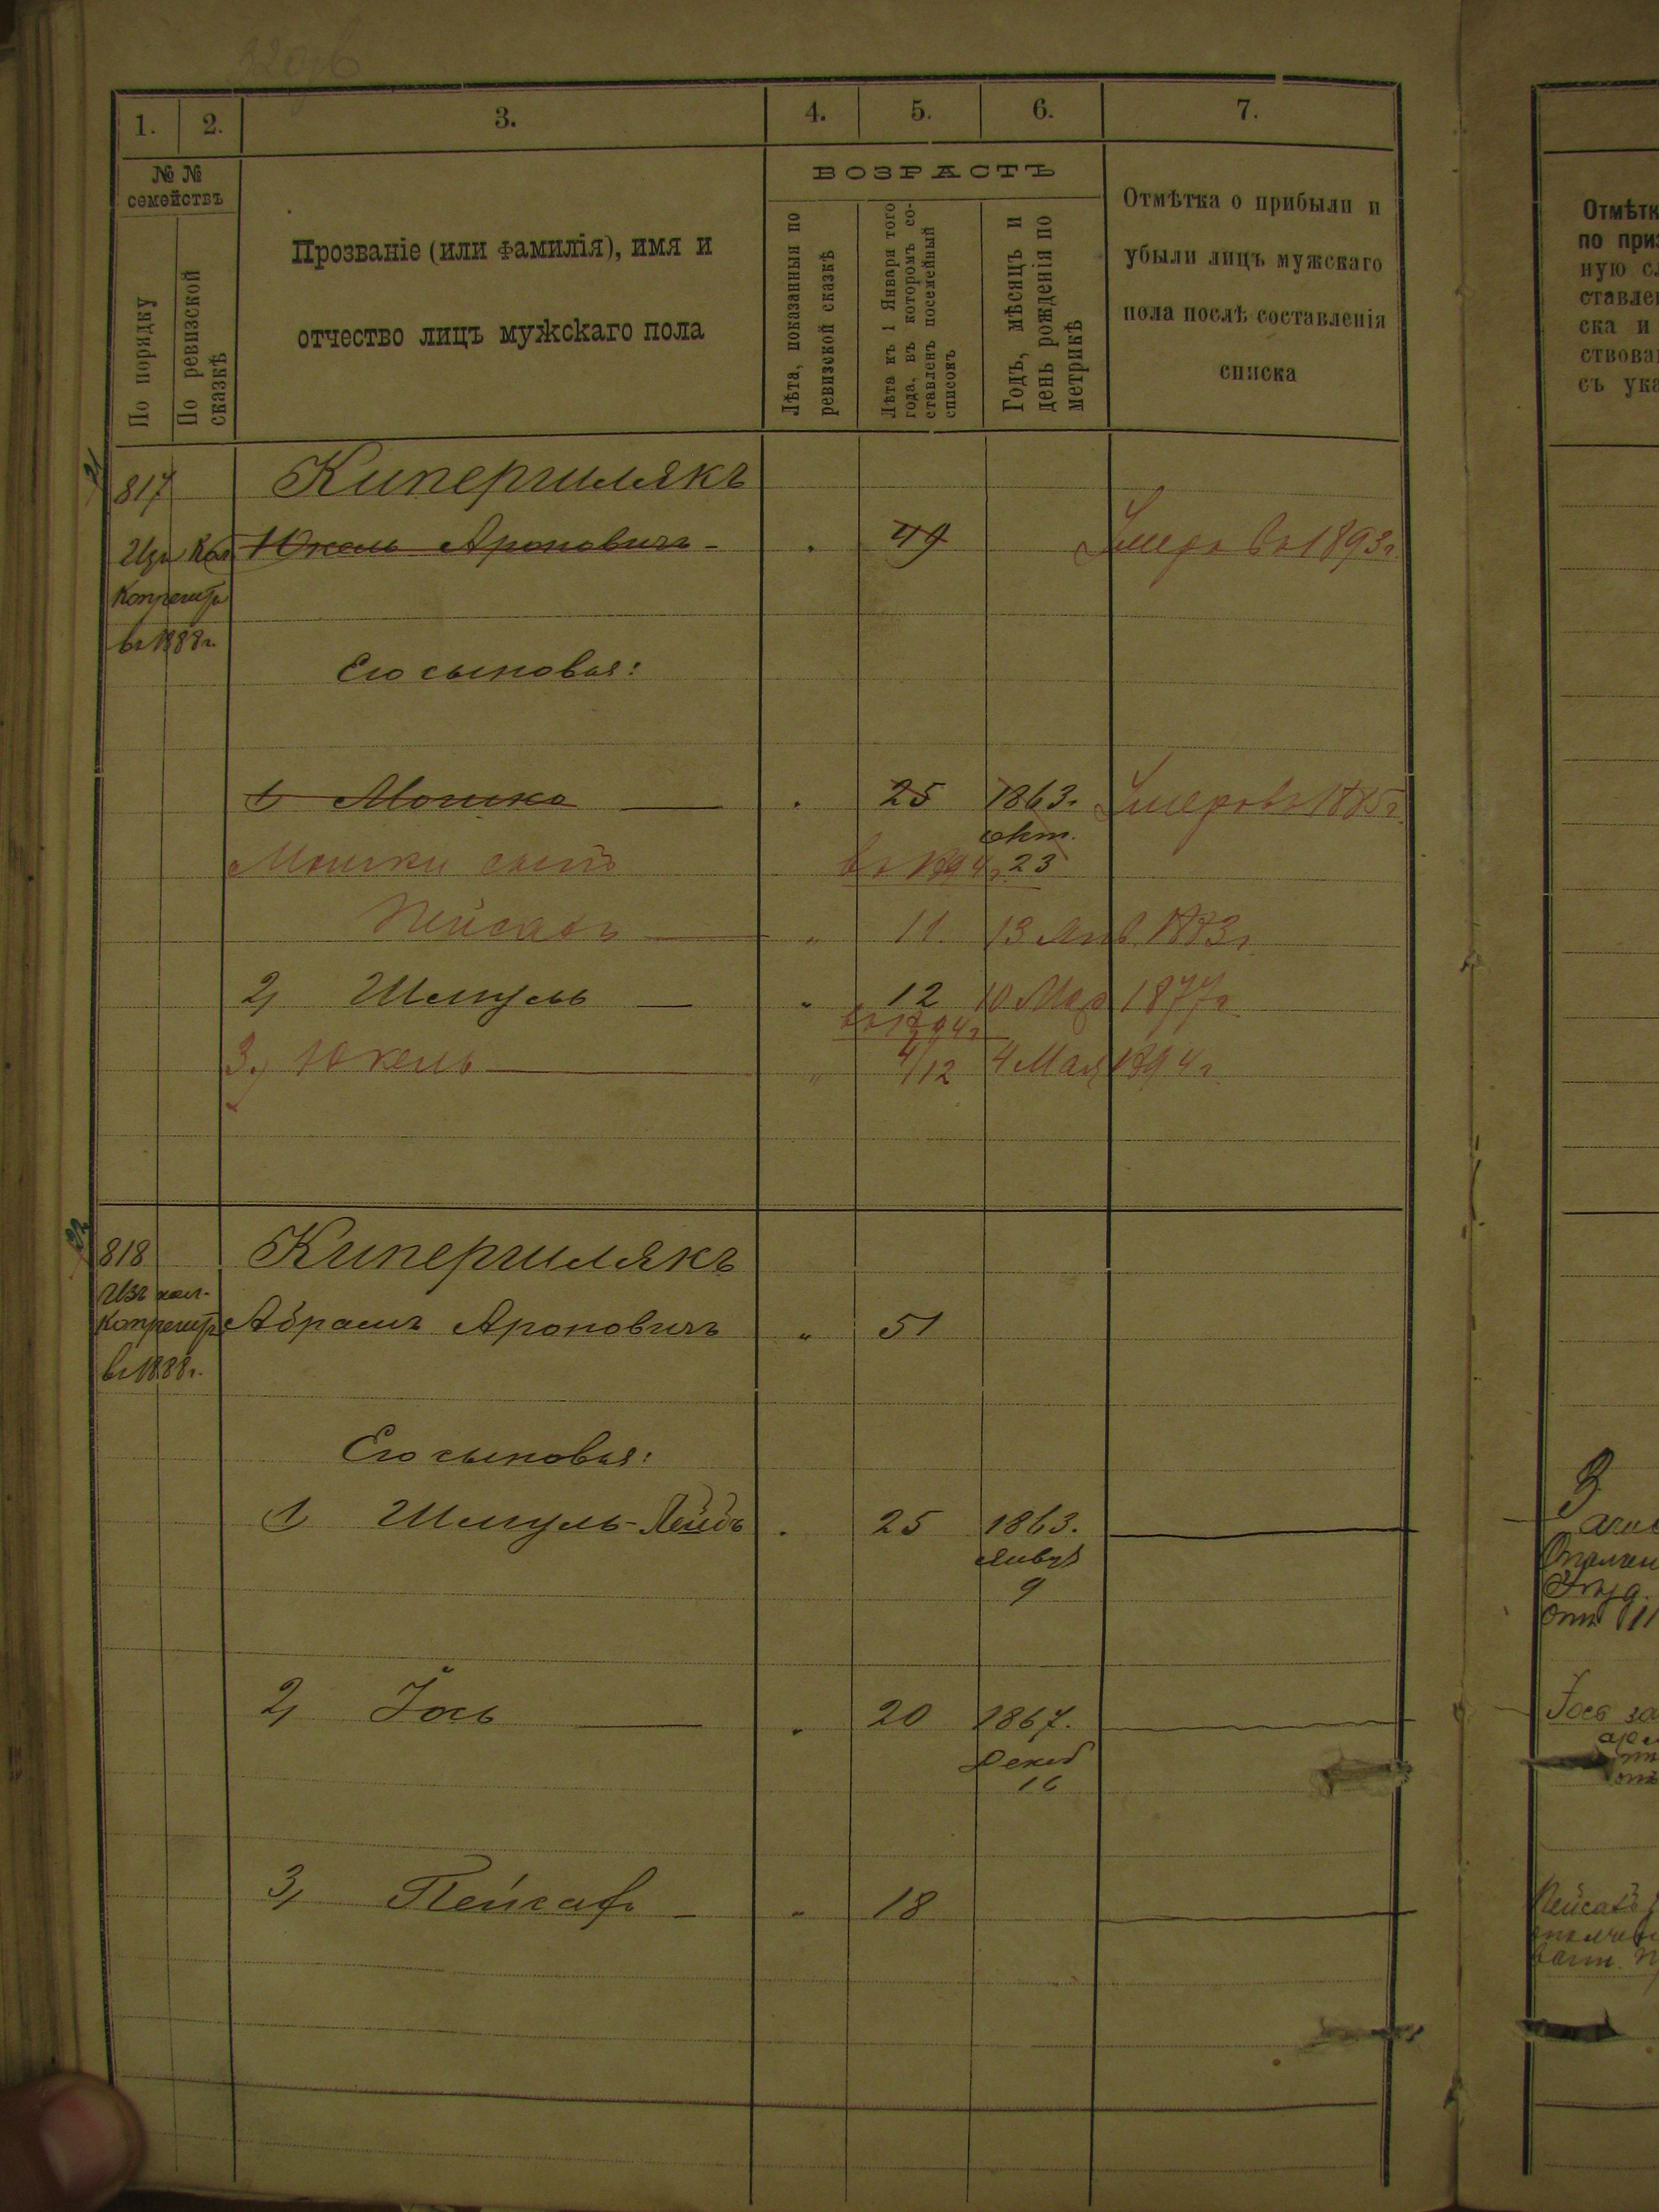 1. 2. 3. 4. 5. 6. 7.
№ №
семействъ
По порядку
По ревизской
сказкѣ
Прозваніе (или фамилія), имя и
отчество лицъ мужскаго пола
ВОЗРАСТЪ
Лѣта, показанныя по
ревизской сказкѣ
Лѣта къ 1 Января того
года, въ которомъ со-
ставленъ посемейный
списокъ
Годъ, мѣсяцъ и
день рожденія по
метрикѣ
Отмѣтка о прибыли и
убыли лицъ мужскаго
пола послѣ составленія
списка
817 Кипершлякъ
Изъ Кол. Юкель Ароновичъ - 49 Умеръ въ 1893 г.
въ 1888 г.
Его сыновья:
1, Мошко 25 1863. Умеръ въ 1885 г.
окт.
23
Мошки сынъ въ 1894 г.
Пейсахъ " 11 13 Янв. 1883 г.
2, Шмуль " 12 10 Мая 1877 г.
въ 1894 г.
3, Юкель " 4/12 4 Мая 1894 г.
818 Кипершлякъ
Изъ кол.
Абрамъ Ароновичъ " 51
въ 1888 г.
Его сыновья:
1, Шмуль-Лейбъ 25 1863.
Январ
9
2, Іось 20 1867.
Декаб
16
3, Пейсахъ " 18
Отмѣтк
по приз
ную сл
ставлен
ска и
ствова
съ ука
Іось за
Пейсахъ